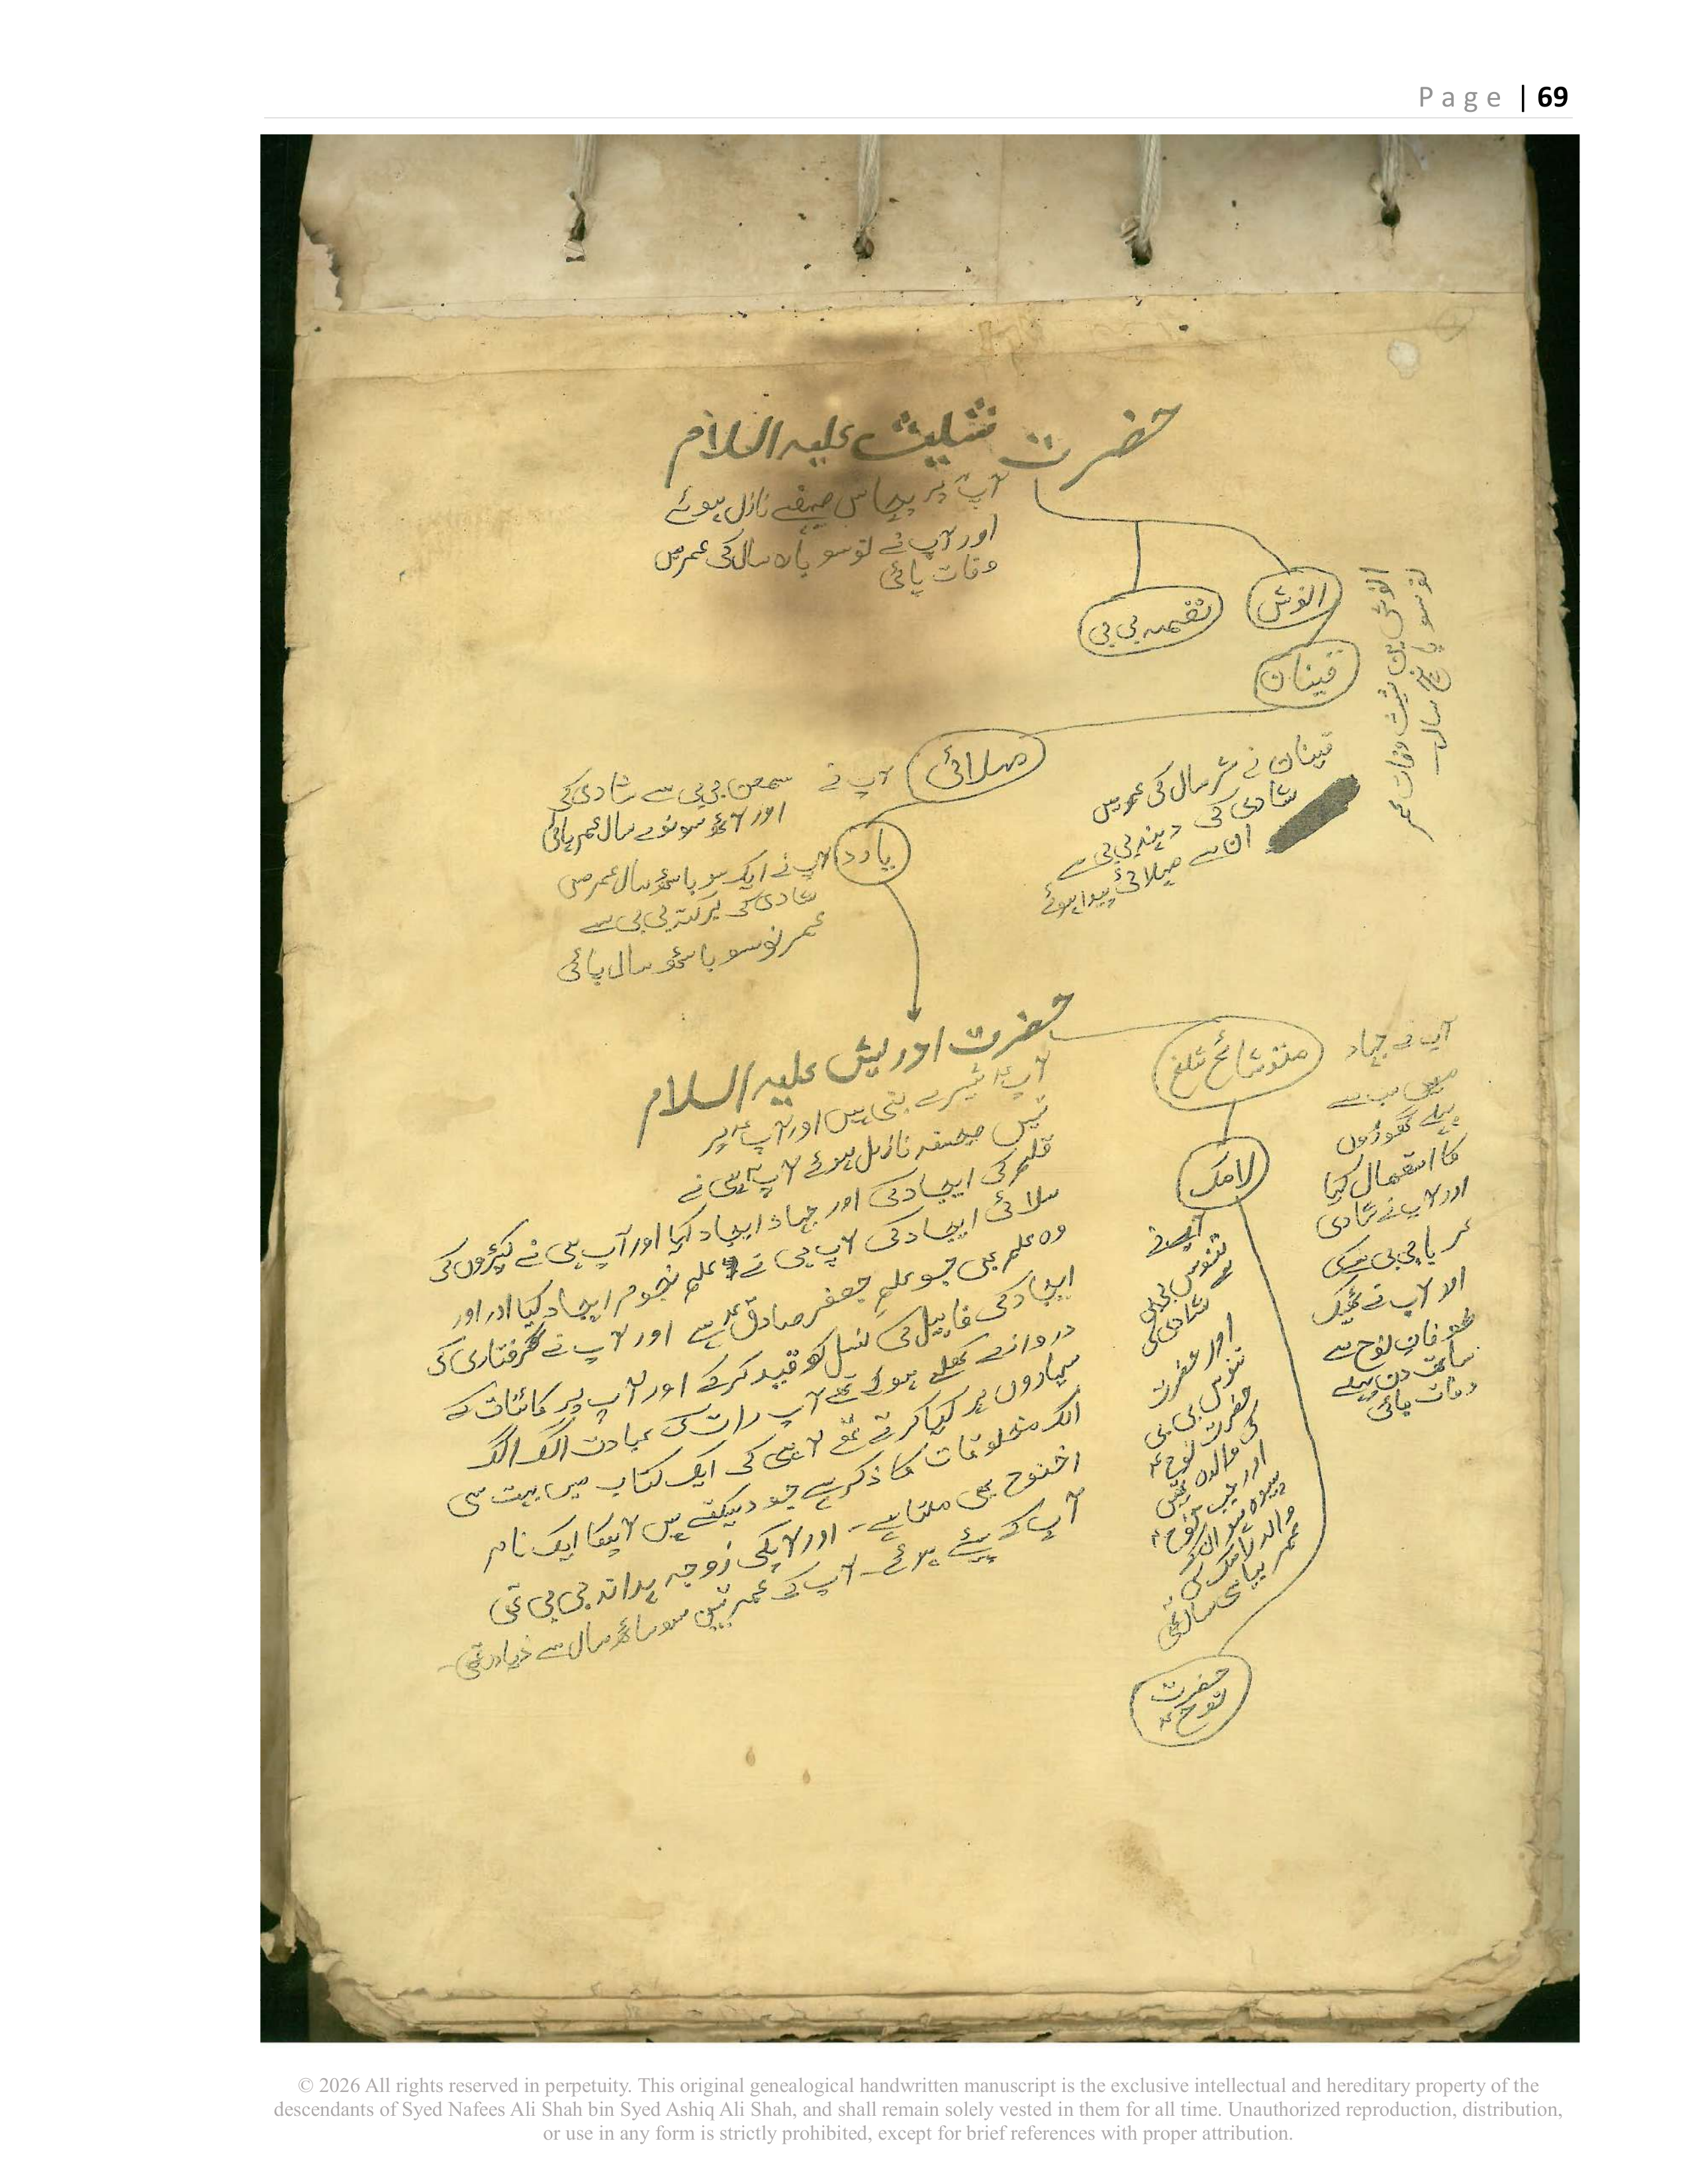 Page | 69
حضرت شیث علیہ السلام
آپؑ پر پچاس صحیفے نازل ہوئے
اور آپ نے نوسو بارہ سال کی عمر میں
وفات پائی
انوش
نقمہ بی بی
قینان
انوش بن شیث وفات عمر
نوسو پانچ سال
مہلائی
قینان نے ستر سال کی عمر میں
شادی کی دینہ بی بی سے
ان سے مہلائی پیدا ہوئے
آپ نے سمعن بی بی سے شادی کی
اور آٹھ سو نوے سال عمر پائی
یادد
آپ نے ایک سو باسٹھ سال عمر میں
شادی کی برکتہ بی بی سے
عمر نوسو باسٹھ سال پائی
حضرت ادریس علیہ السلام
آپؑ تیسرے نبی ہیں اور آپؑ پر
تیس صحیفہ نازل ہوئے آپؑ ہی نے
قلم کی ایجاد کی اور جہاد ایجاد کیا اور آپ ہی نے کپڑوں کی
سلائی ایجاد کی آپ ہی نے علم نجوم ایجاد کیا اور اور
وہ علم بھی جو علم جعفر صادقؑ ہے اور آپ نے گرفتاری کی
ایجاد کی قابیل کی نسل کو قید کرکے اور آپ پر کائنات کے
دروازے کھلے ہوئے تھے آپ رات کی عبادت الگ الگ
سیاروں پر کیا کرتے تھے آپ ہی کی ایک کتاب میں بہت سی
الگ مخلوقات کا ذکر ہے جو دیکھتے ہیں آپکا ایک نام
اخنوح بھی ملتا ہے۔ اور آپکی زوجہ ہدانہ بی بی تھی
آپ کے بیٹے ہوئے۔ آپ کی عمر تین سو ساٹھ سال سے زیادہ تھی۔
متوشائح
لامک
آپ نے جہاد
میں سب سے
پہلے گھوڑوں
کا استعمال کیا
اور آپ نے شادی
عربا بی بی سے کی
الا آپ نے ٹھیک
طوفان نوح سے
سات دن پہلے
وفات پائی
آپ نے
قنوس بی بی
سے شادی کی
اور حضرت
قنوس بی بی
حضرت نوحؑ
کی والدہ تھیں
اور جب نوحؑ
پیدا ہوئے ان کے
والد لامک کی
عمر بیاسی سال تھی
حضرت
نوحؑ
© 2026 All rights reserved in perpetuity. This original genealogical handwritten manuscript is the exclusive intellectual and hereditary property of the
descendants of Syed Nafees Ali Shah bin Syed Ashiq Ali Shah, and shall remain solely vested in them for all time. Unauthorized reproduction, distribution,
or use in any form is strictly prohibited, except for brief references with proper attribution.